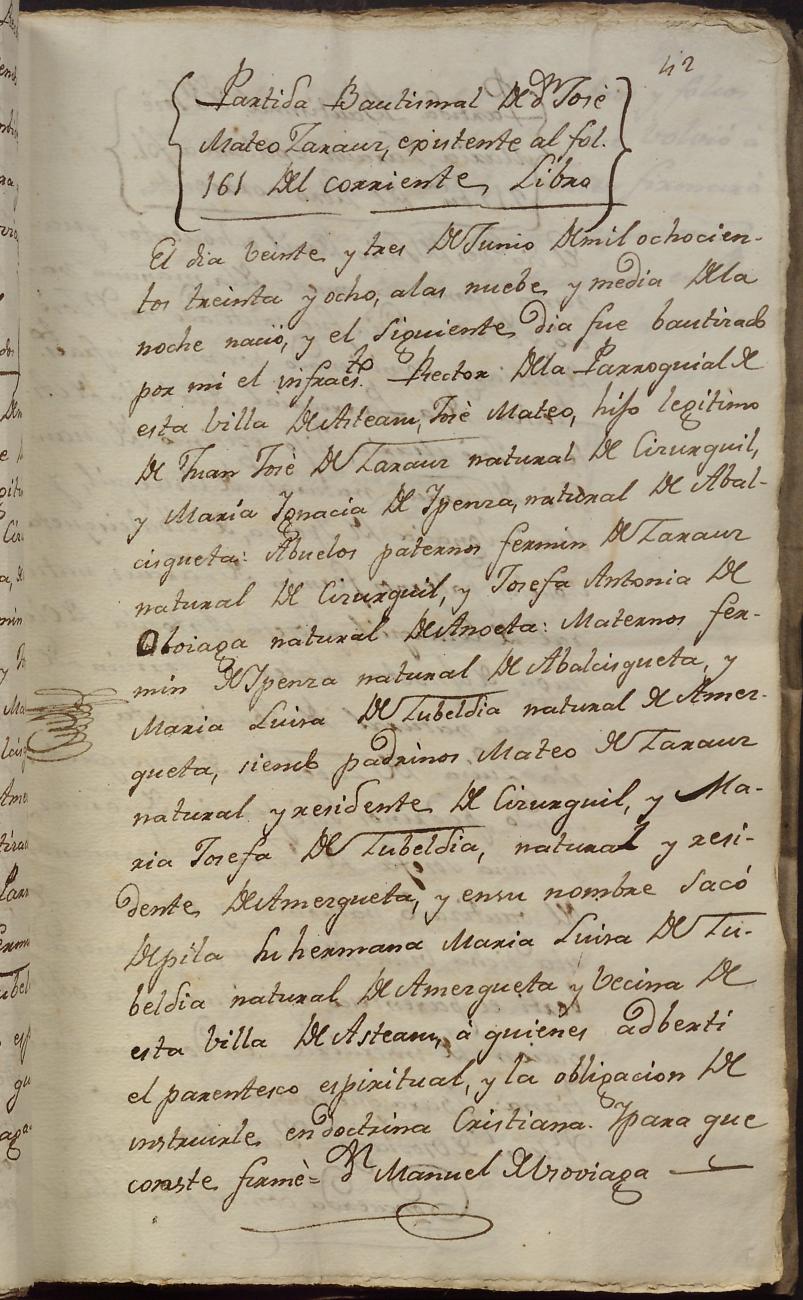 42
Partida Bautismal De Dn. José
Mateo Zaraur, existente al fol.
161 Del corriente Libro
El dia beinte y tres De Junio De mil ochocien-
tos treinta y ocho, a las nuebe y media De la
noche nació, y el siguiente dia fue bautizado
por mi el infraesto. Rector De la Parroquial de
esta billa De Asteasu, José Mateo, hijo legitimo
De Juan José De Zaraur natural De Cizurquil,
y María Ignacia De Ypenza, natural De Abal-
cisqueta: Abuelos paternos fermin De Zaraur
natural De Cizurquil, y Josefa Antonia De
Oboiaga natural De Anoeta: Maternos fer-
min De Ypenza natural De Abalcisqueta, y
Maria Luisa De Zubeldia natural de Amez-
queta, siendo padrinos Mateo De Zaraur
natural y residente De Cizurquil, y Ma-
ria Josefa De Zubeldia, natural y resi-
dente De Amezqueta, y en su nombre sacó
De pila su hermana Maria Luisa De Zu-
beldia natural De Amezqueta y becina De
esta billa De Asteasu, á quienes adberti
el parentesco espiritual, y la obligacion De
instruirle en doctrina Cristiana. Y para que
conste firmé = Dn Manuel de Usoviaga